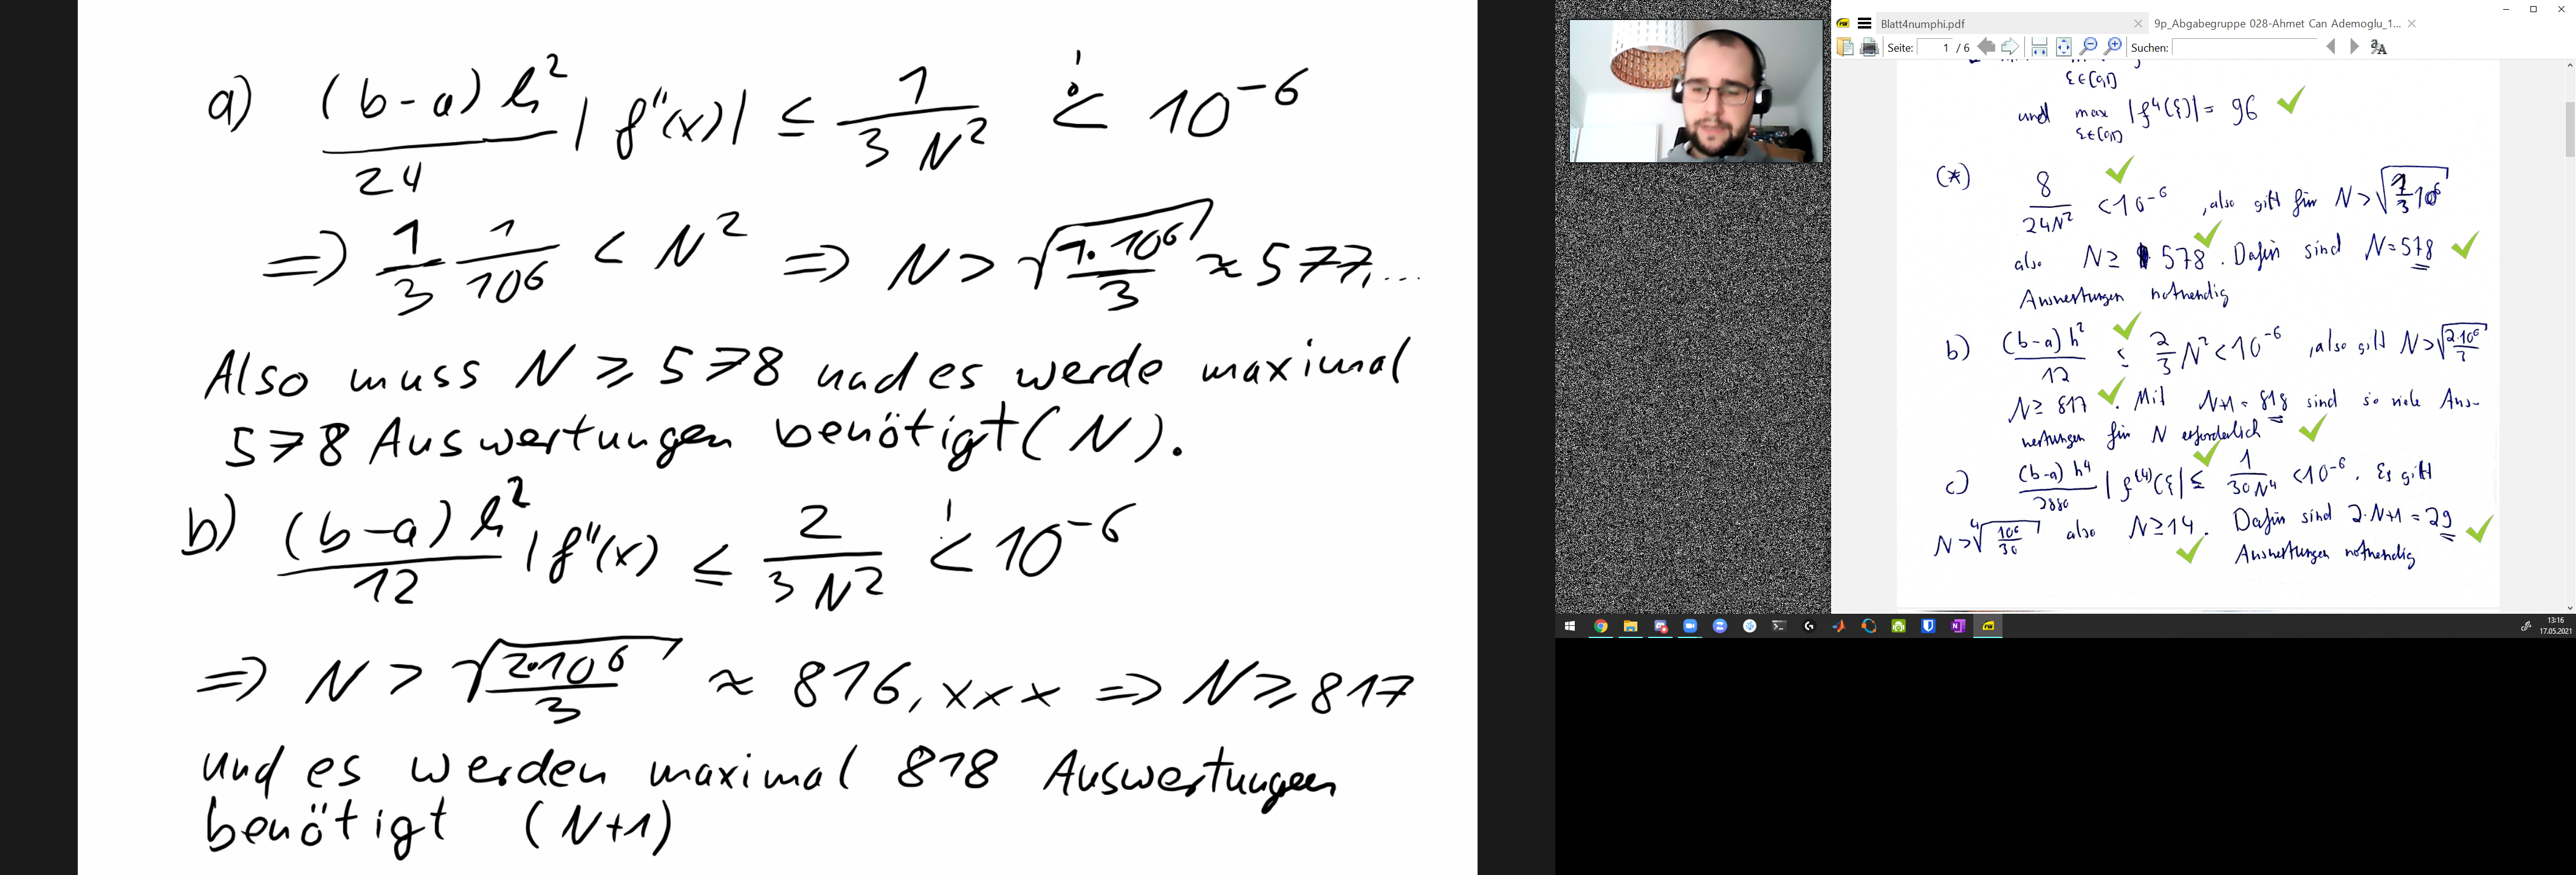 a) (b-a) h² / 24 |f''(x)| ≤ 1 / 3 N² <! 10⁻⁶
⇒ 1/3 1/10⁶ < N² ⇒ N > √(1·10⁶ / 3) ≈ 577,...
Also muss N ≥ 578 und es werde maximal
578 Auswertungen benötigt (N).
b) (b-a) h² / 12 |f''(x) ≤ 2 / 3 N² <! 10⁻⁶
⇒ N > √(2·10⁶ / 3) ≈ 816,xxx ⇒ N ≥ 817
und es werden maximal 818 Auswertungen
benötigt (N+1)
Blatt4numphi.pdf
9p_Abgabegruppe 028-Ahmet Can Ademoglu_1...
Seite: 1 / 6 Suchen:
ξ∈[0,1]
und max |f⁴(ξ)| = 96
ξ∈[0,1]
(*) 8 / 24N² < 10⁻⁶, also gilt für N > √(1/3 10⁶)
also N ≥ 578. Dafür sind N = 578
Auswertungen notwendig
b) (b-a) h² / 12 ≤ 2/3 N² < 10⁻⁶, also gilt N > √(2·10⁶ / 3)
N ≥ 817. Mit N+1 = 818 sind so viele Aus-
wertungen für N erforderlich
c) (b-a) h⁴ / 2880 |f⁽⁴⁾(ξ| ≤ 1 / 30N⁴ < 10⁻⁶. Es gilt
N > ⁴√(10⁶ / 30) also N ≥ 14. Dafür sind 2·N+1 = 29
Auswertungen notwendig
13:16
17.05.2021